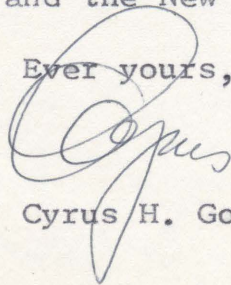 and the New
Ever yours,
Cyrus
Cyrus H. Go